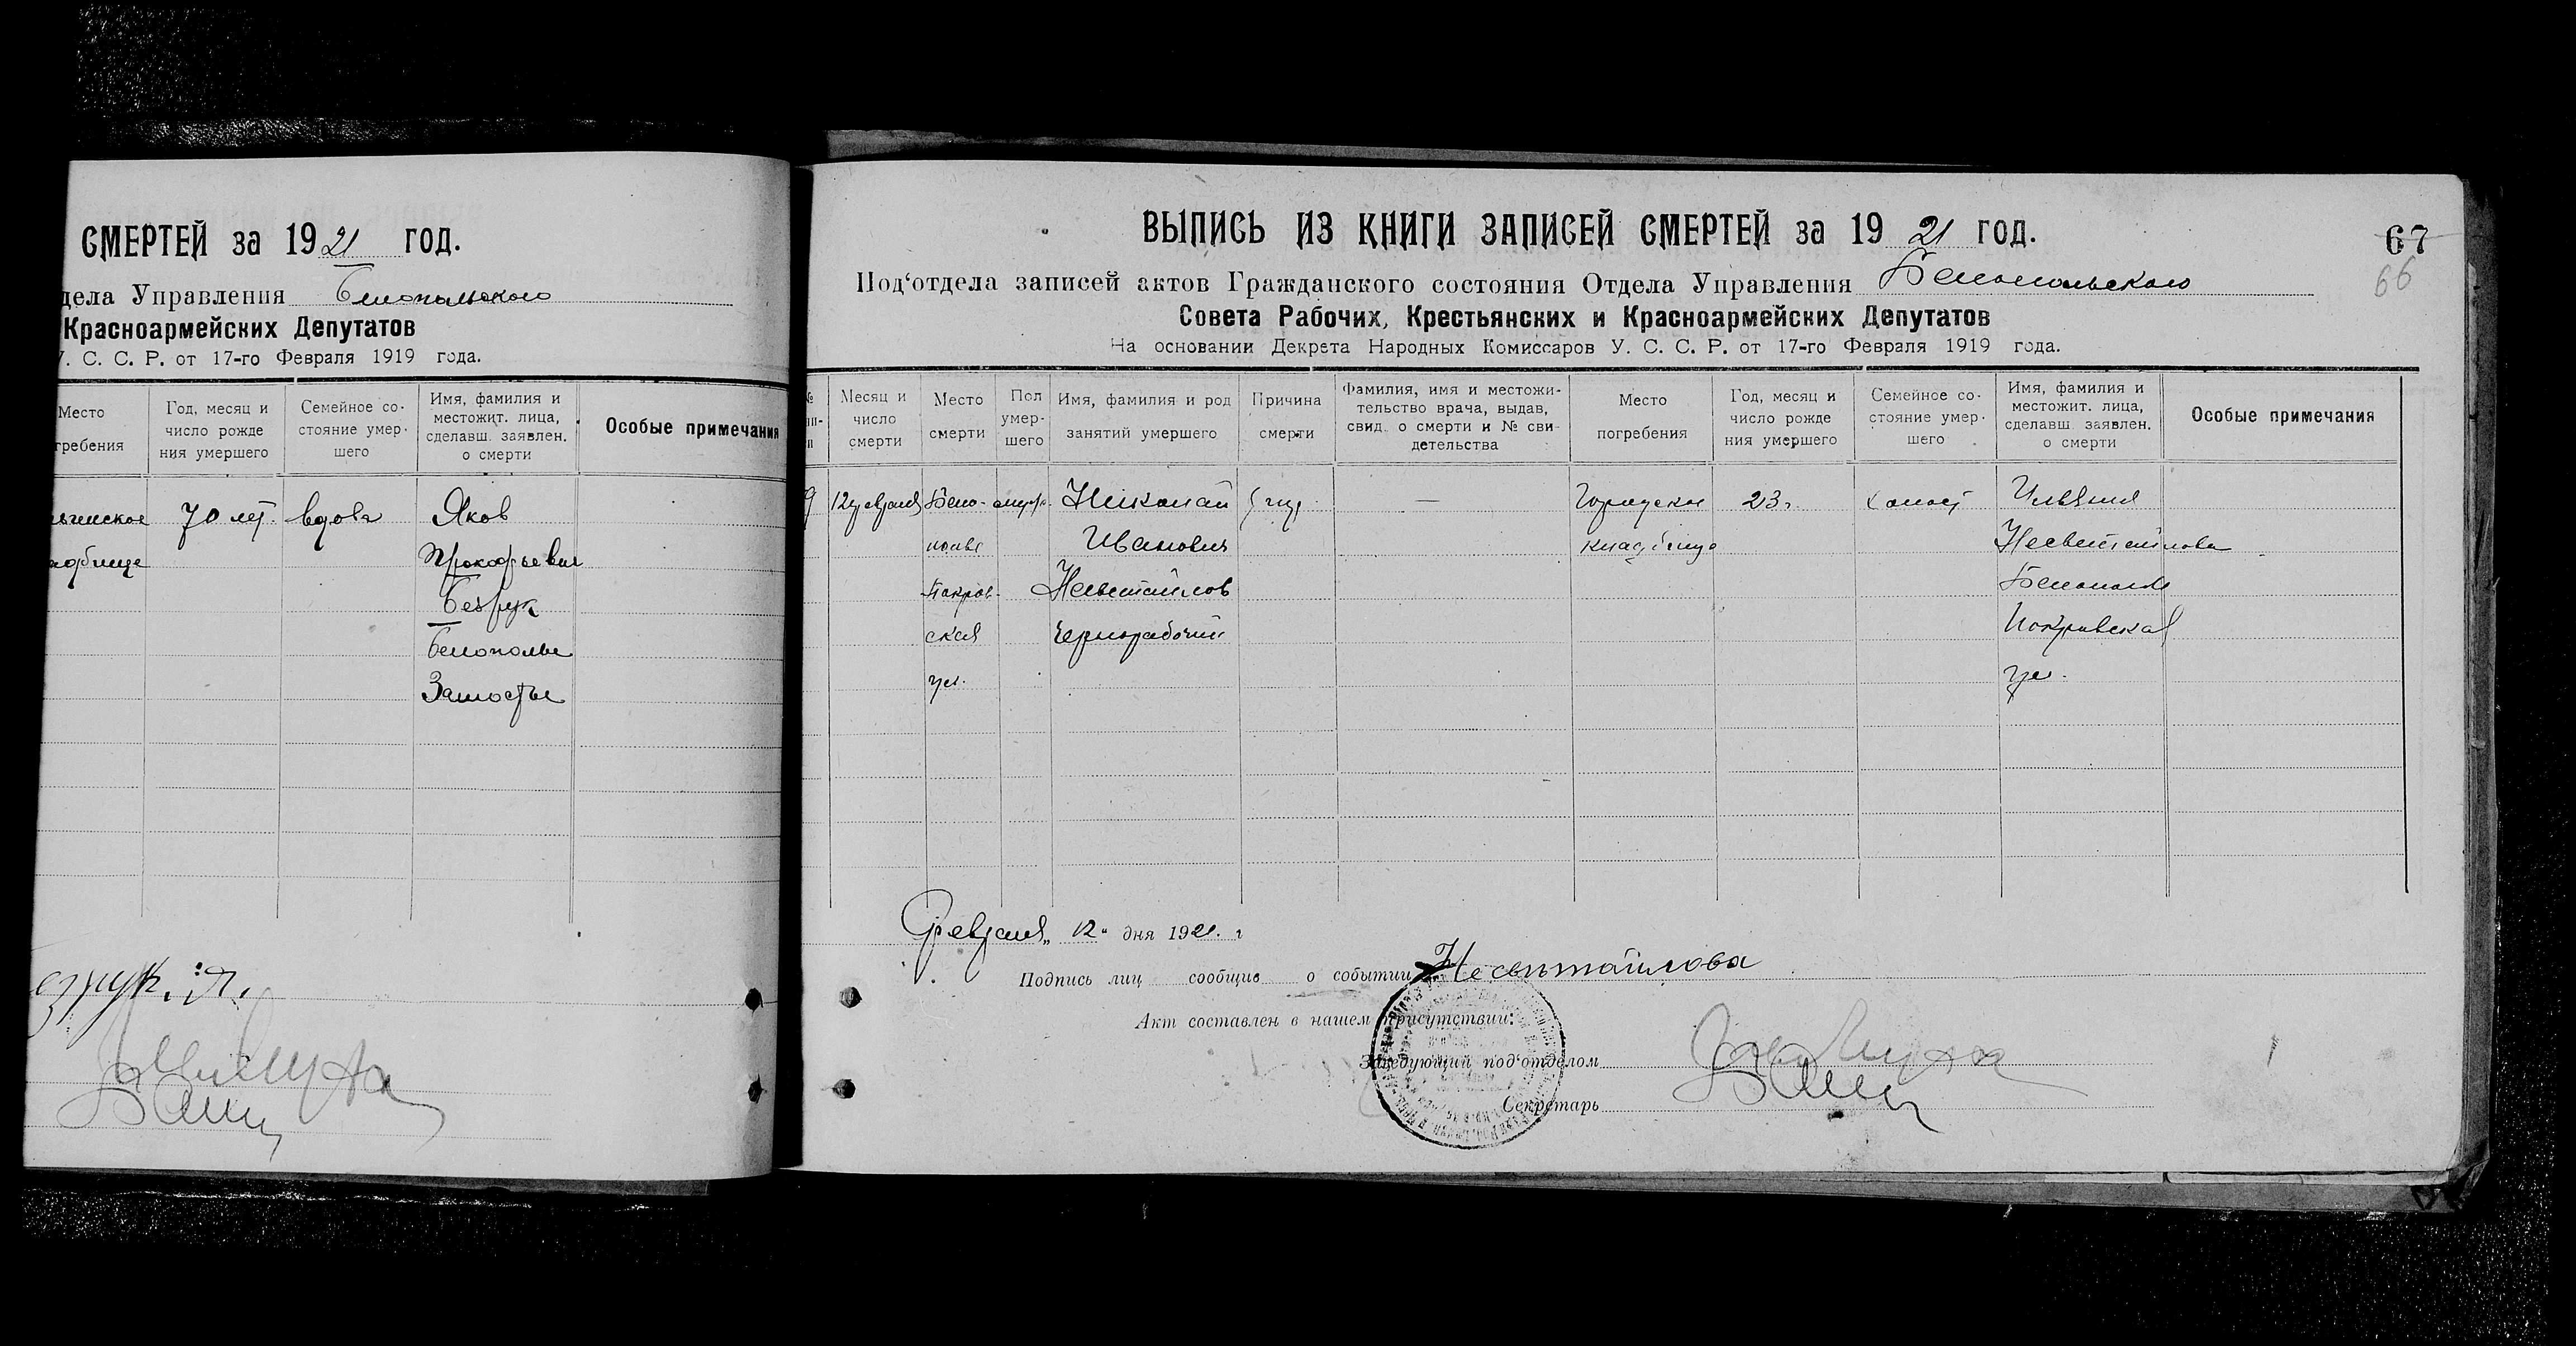 СМЕРТЕЙ за 1921 год.
дела Управления Белопольского
Красноармейских Депутатов
У. С. С. Р. от 17-го Февраля 1919 года.
Место
гребения
Год, месяц и
число рожде
ния умершего
Семейное со-
стояние умер-
шего
Имя, фамилия и
местожит. лица,
сделавш. заявлен.
о смерти
Особые примечания
70 лет.
вдова
Яков
Прокофьевич
Безрук
Белополье
Замостье
ВЫПИСЬ ИЗ КНИГИ ЗАПИСЕЙ СМЕРТЕЙ за 1921 год.
67
66
Под'отдела записей актов Гражданского состояния Отдела Управления Белопольского
Совета Рабочих, Крестьянских и Красноармейских Депутатов
На основании Декрета Народных Комиссаров У. С. С. Р. от 17-го Февраля 1919 года.
Месяц и
число
смерти
Место
смерти
Пол
умер-
шего
Имя, фамилия и род
занятий умершего
Причина
смерти
Фамилия, имя и местожи-
тельство врача, выдав,
свид. о смерти и № сви-
детельства
Место
погребения
Год, месяц и
число рожде
ния умершего
Семейное со-
стояние умер-
шего
Имя, фамилия и
местожит. лица,
сделавш. заявлен.
о смерти
Особые примечания
9
12 февраля
Бело-
полье
Покров-
ская
ул.
Николай
Иванович
Несвитайлов
Чернорабочий
—
Городское
кладбище
23 г.
холост
Несвитайлова
Белополье
Покровская
ул.
Февраля „12" дня 1921 г
Подпись лиц сообщив о событии Несвитайлова
Акт составлен в нашем присутствии:
Заведующий под'отделом
Секретарь